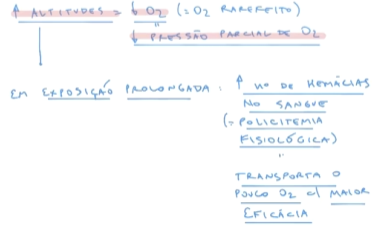 ↑ ALTITUDES = ↓ O2 (= O2 RAREFEITO)
↓ PRESSÃO PARCIAL DE O2
EM EXPOSIÇÃO PROLONGADA: ↑ Nº DE HEMÁCIAS
NO SANGUE
(= POLICITEMIA
FISIOLÓGICA)
TRANSPORTA O
POUCO O2 c/ MAIOR
EFICÁCIA